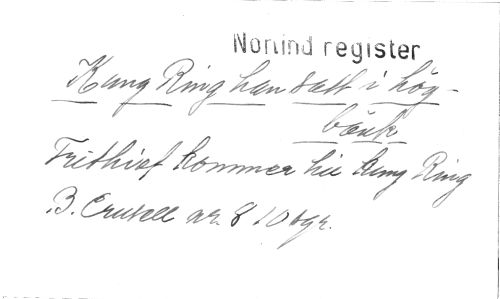 Norlind register
Kung Ring han satt i hög-
bänk
Frithiof kommer till Kung Ring
B. Crusell nr. 8 10 bgr.